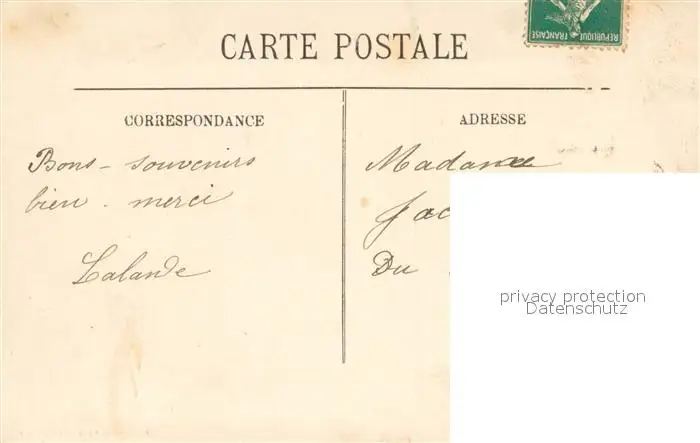 RÉPUBLIQUE FRANÇAISE
CARTE POSTALE
CORRESPONDANCE
ADRESSE
Bons - souvenirs
bien - merci
Lalande
Madame
Jac
Du
privacy protection
Datenschutz